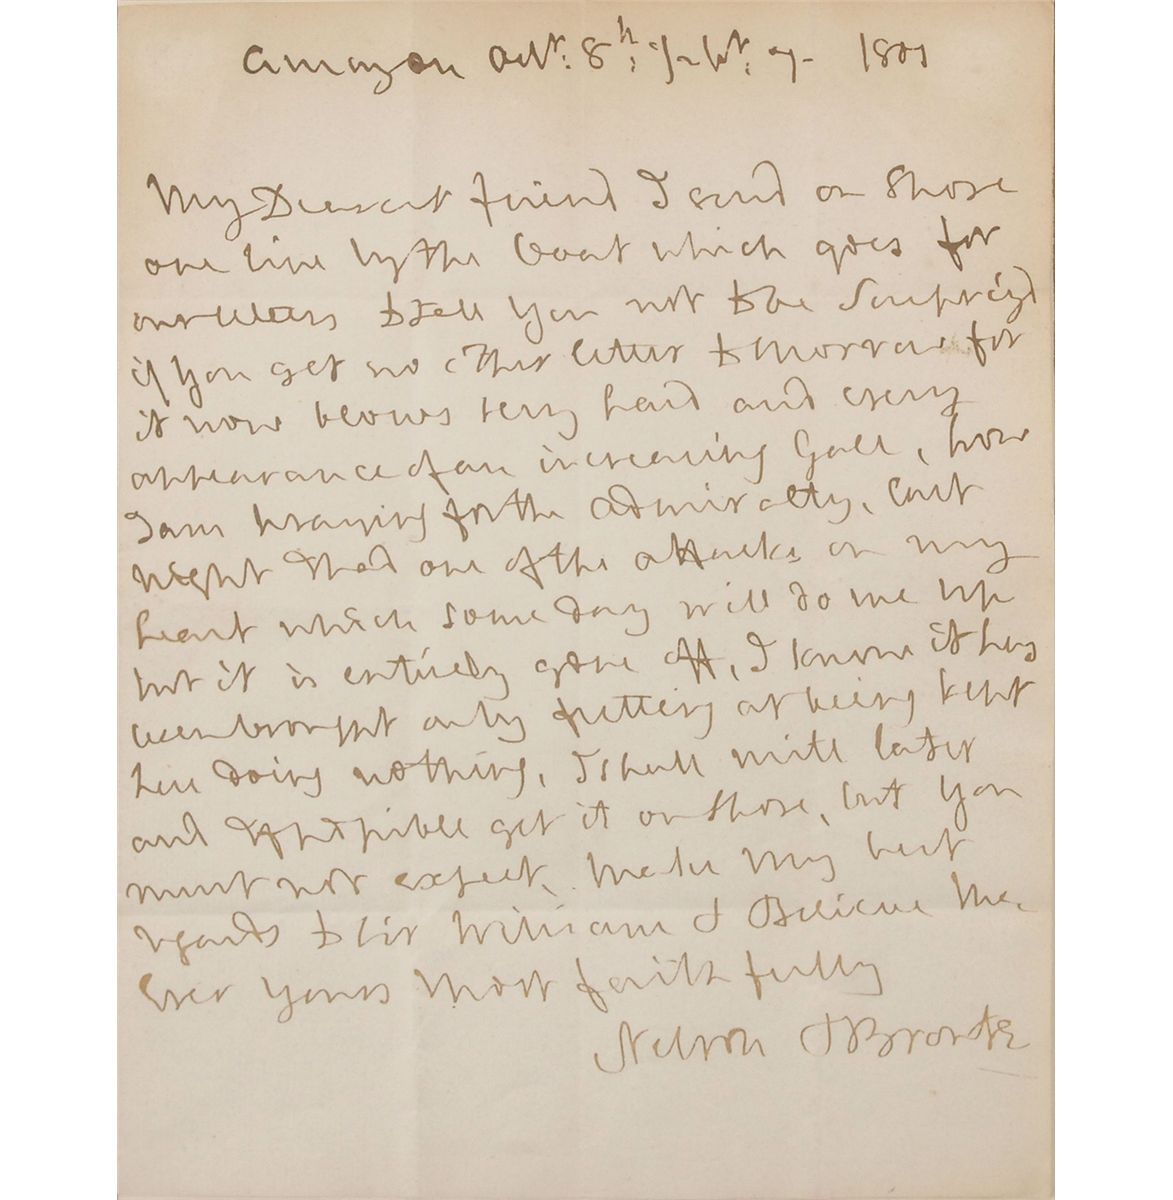 Amazon Octr: 8th: 1/2 pt. 7- 1801
My Dearest friend I send on Shore
one line by the boat which goes for
our letters to tell you not to be Surprizd
if you get no other letter tomorrow for
it now blows very hard and every
appearance of an increasing Gale, how
I am praying for the Admiralty, last
night I had one of the attacks on my
heart which some day will do me up
but it is entirely gone off, I know it has
been brought on by fretting at being kept
here doing nothing, I shall write later
and if possible get it on shore, but you
must not expect. Make my best
regards to Sir William & Believe Me.
Ever yours Most faithfully
Nelson & Bronte